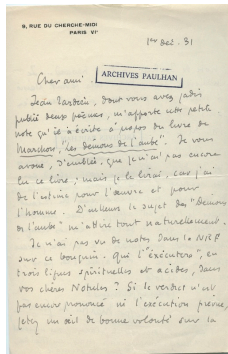 9, RUE DU CHERCHE-MIDI
PARIS VIᵉ
1er déc. 31
Cher ami
ARCHIVES PAULHAN
Jean Tardieu, dont vous avez jadis
publié deux poèmes, m'apporte cette petite
note qu'il a écrite à propos du livre de
Marchon, "Les démons de l'aube". Je vous
avoue, d'emblée, que je n'ai pas encore
lu ce livre ; mais je le lirai, car j'ai
de l'estime pour l'œuvre et pour
l'homme. D'ailleurs le sujet des "Démons
de l'aube" m'attire tout naturellement.
Je n'ai pas vu de notes dans la NRF
sur ce bouquin. Qui l'exécutera, en
trois lignes spirituelles et acides, dans
vos chères Notules ? Si le verdict n'est
pas encore prononcé ni l'exécution prévue,
jetez un œil de bonne volonté sur la